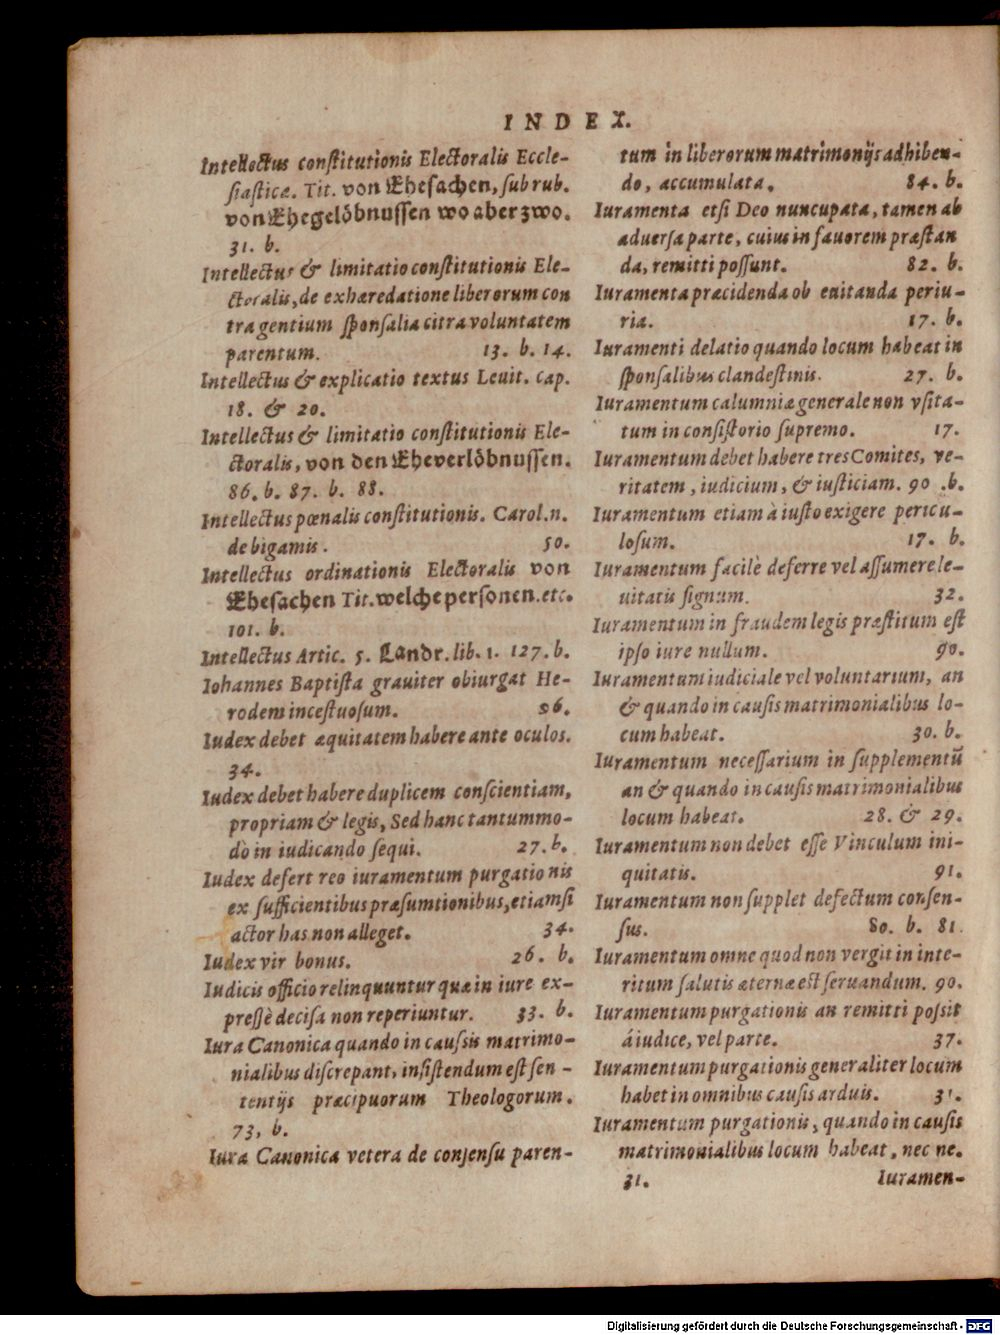 INDEX.
Intellectus conſtitutionis Electoralis Eccle-
ſiaſticæ. Tit. von Eheſachen, ſub rub.
von Ehegelöbnuſſen wo aber zwo.
31. b.
Intellectus & limitatio conſtitutionis Ele-
ctoralis, de exhæredatione liberorum con
tragentium ſponſalia citra voluntatem
parentum. 13. b. 14.
Intellectus & explicatio textus Leuit. cap.
18. & 20.
Intellectus & limitatio conſtitutionis Ele-
ctoralis, von den Eheverlöbnuſſen.
86. b. 87. b. 88.
Intellectus pœnalis conſtitutionis. Carol. n.
de bigamis. 50.
Intellectus ordinationis Electoralis von
Eheſachen Tit. welche perſonen. etc.
101. b.
Intellectus Artic. 5. Landr. lib. 1. 127. b.
Iohannes Baptiſta grauiter obiurgat He-
rodem inceſtuoſum. 56.
Iudex debet æquitatem habere ante oculos.
34.
Iudex debet habere duplicem conſcientiam,
propriam & legis, Sed hanc tantummo-
dò in iudicando ſequi. 27. b.
Iudex defert reo iuramentum purgationis
ex ſufficientibus præſumtionibus, etiamſi
actor has non alleget. 34.
Iudex vir bonus. 26. b.
Iudicis officio relinquuntur quæ in iure ex-
preſſè deciſa non reperiuntur. 33. b.
Iura Canonica quando in cauſsis matrimo-
nialibus diſcrepant, inſiſtendum eſt ſen-
tentijs præcipuorum Theologorum.
73, b.
Iura Canonica vetera de conſenſu paren-
tum in liberorum matrimonijs adhiben-
do, accumulata. 84. b.
Iuramenta etſi Deo nuncupata, tamen ab
aduerſa parte, cuius in fauorem præſtan
da, remitti poſſunt. 82. b.
Iuramenta præcidenda ob euitanda periu-
ria. 17. b.
Iuramenti delatio quando locum habeat in
ſponſalibus clandeſtinis. 27. b.
Iuramentum calumniæ generale non vſita-
tum in conſiſtorio ſupremo. 17.
Iuramentum debet habere tres Comites, ve-
ritatem, iudicium, & iuſticiam. 90 .b.
Iuramentum etiam à iuſto exigere pericu-
loſum. 17. b.
Iuramentum facilè deferre vel aſſumere le-
uitatis ſignum. 32.
Iuramentum in fraudem legis præſtitum eſt
ipſo iure nullum. 90.
Iuramentum iudiciale vel voluntarium, an
& quando in cauſis matrimonialibus lo-
cum habeat. 30. b.
Iuramentum neceſſarium in ſupplementū
an & quando in cauſis matrimonialibus
locum habeat. 28. & 29.
Iuramentum non debet eſſe Vinculum ini-
quitatis. 91.
Iuramentum non ſupplet defectum conſen-
ſus. 80. b. 81.
Iuramentum omne quod non vergit in inte-
ritum ſalutis æternæ est ſeruandum. 90.
Iuramentum purgationis an remitti poſsit
á iudice, vel parte. 37.
Iuramentum purgationis generaliter locum
habet in omnibus cauſis arduis. 31.
Iuramentum purgationis, quando in cauſis
matrimonialibus locum habeat, nec ne.
31. Iuramen-
Digitalisierung gefördert durch die Deutsche Forschungsgemeinschaft - DFG